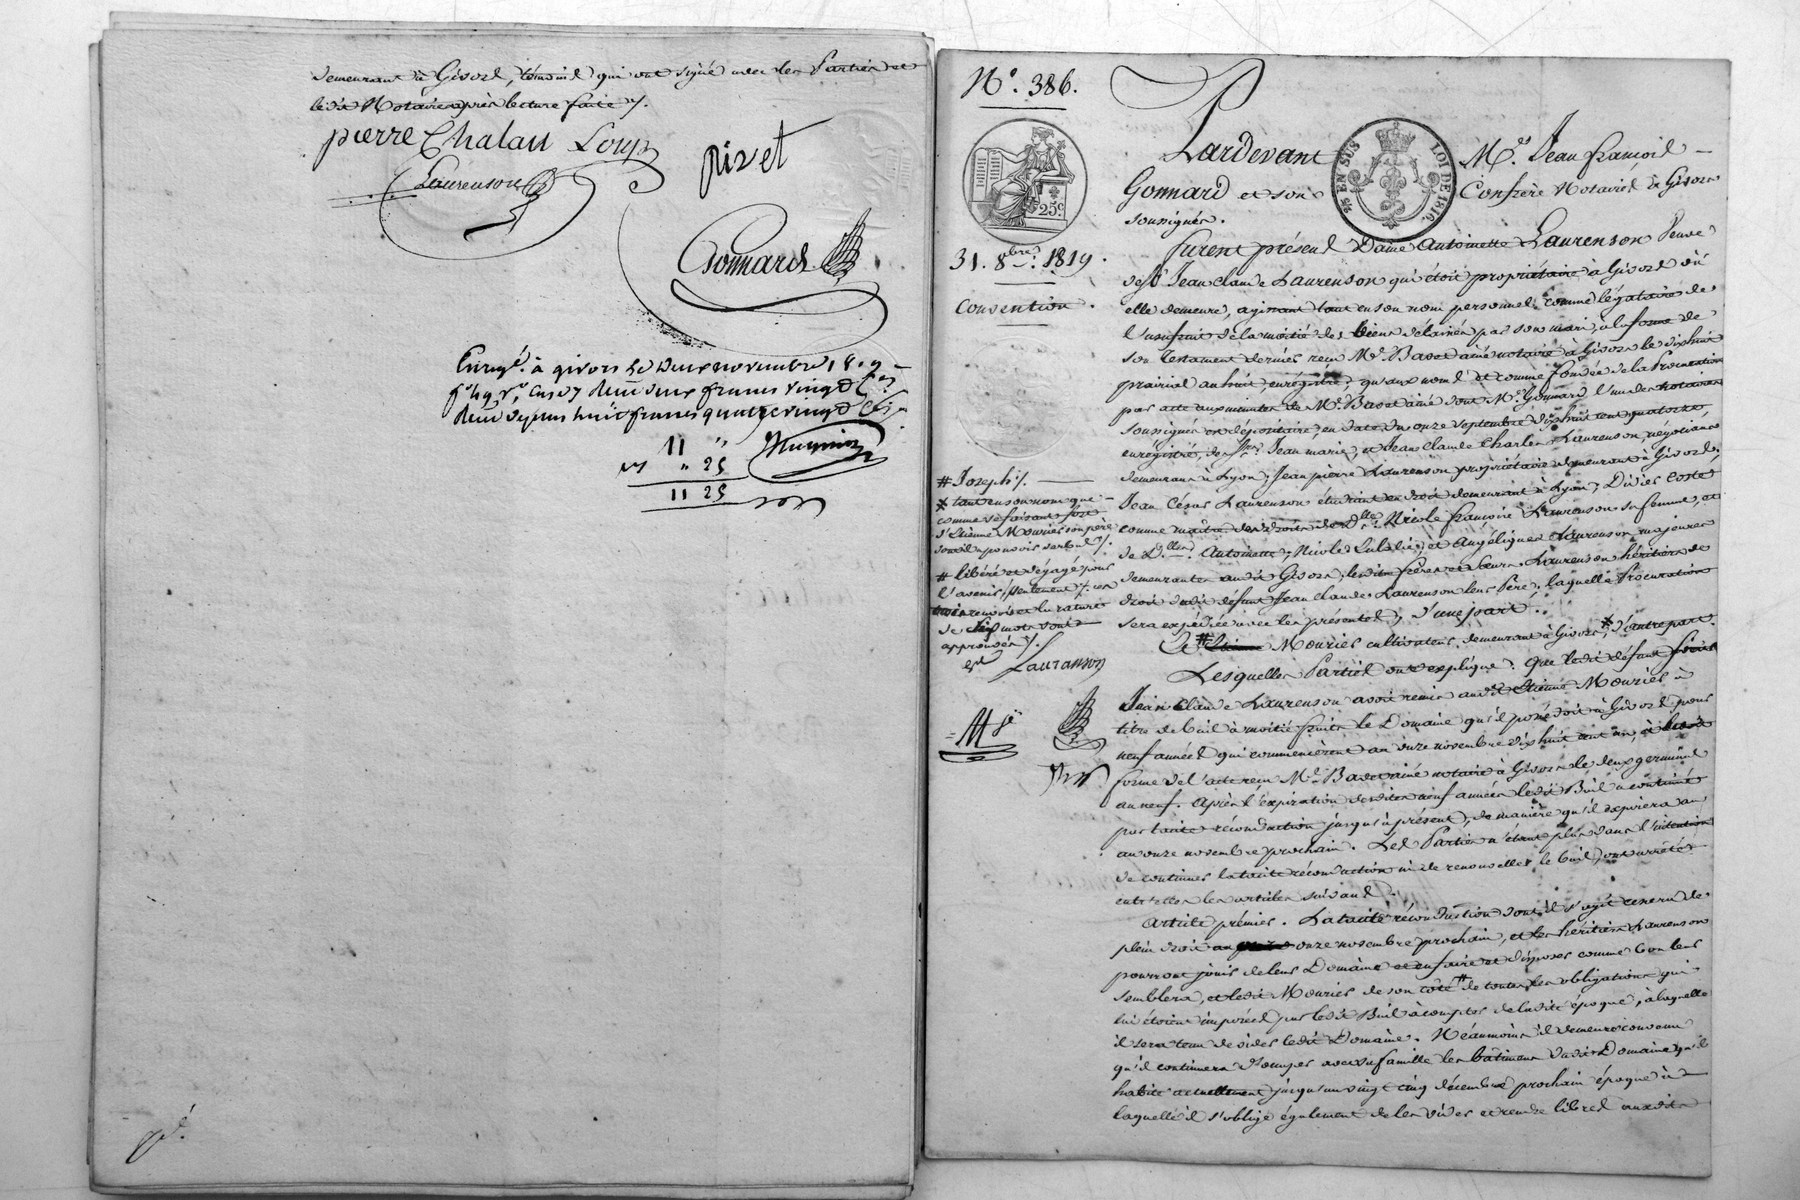 demeurant à Givord, témoins qui ont signé avec les Parties et
ledit Notaire après lecture faite ./.
pierre Chalan Loup
pivet
Laurenson
Gonnard
Enregé. à givors le deux novembre 1819
fo. 49 vo. Case 7 Reçu deux francs vingt Ces
Reçu de plus huit francs quatre vingt Ces
11 "
" 25
11 25
gé.
No. 386.
25c.
31. 8bre. 1819.
Convention.
# Joseph ./.
* tant en son nom que
comme se faisant fort
d'Etienne Mouries son père
# libéré et dégagé pour
l'avenir, seulement ./. ces
renvois et la rature
de mots sont
approuvés ./.
Lauranson
Pardevant Me. Jean françois
25 EN SUS LOI DE 1816.
Gonnard et son Confrère Notaires à Givors
soussignés.
furent présens Dame Antoinette Laurenson Veuve
de Sr. Jean Claude Laurenson qui étoit propriétaire à Givord où
elle demeure, agissant tant en son nom personnel comme légataire de
l'usufruit de la moitié des biens délaissés par son mari, à la forme de
son Testament dernier reçu Me. Badet ainé notaire à Givors le dixhuit
prairial an huit enregistré, qu'aux noms et comme fondée de la Procuration
par acte aux minutes de Me. Badet ainé dont Me. Gonnard l'un des notaires
soussignés est dépositaire, en date du onze septembre dixhuit cent quatorze,
enrégistré, de Srs. Jean marie, et Jean Claude Charles Laurenson, négociants
demeurans à Lyon; Jean pierre Laurenson propriétaire demeurant à Givord;
Jean César Laurenson étudiant en droit demeurant à Lyon; Didier Coste
comme maître des droits de Dlle. Nicole françoise Laurenson sa femme, et
de Dlles. Antoinette, Nicole Eulalie, et Angélique Laurenson, majeures
demeurantes audit Givors; lesdits frères et soeurs Laurenson héritiers de
droit dudit défunt Jean Claude Laurenson leur Père, laquelle Procuration
sera expédiée avec les présentes, d'une part.
Et # Mouries cultivateur, demeurant à Givors, * d'autre part.
Lesquelles Parties ont expliqué: que ledit défunt
Jean Claude Laurenson avoit remis audit Etienne Mouries à
titre de bail à moitié fruits le Domaine qu'il possédoit à Givord pour
neuf années qui commencèrent au onze novembre dixhuit cent un, à la
forme de l'acte reçu Me. Badet ainé notaire à Givors le deux germinal
an neuf. Après l'expiration desdites neuf années ledit Bail a continué
par tacite réconduction jusqu'à présent, de manière qu'il expirera au
au onze novembre prochain. Les Parties n'étant plus dans l'intention
de continuer la tacite réconduction ni de renouveller le bail, ont arrêté
entr'elles les articles suivans.
Article prémier. La tacite réconduction dont il s'agit cessera de
plein droit au onze novembre prochain, et les héritiers Laurenson
pourront jouir de leur Domaine et en faire et disposer comme bon leur
semblera, et ledit Mouries de son côté # de toutes les obligations qui
lui étoient imposées par ledit Bail à compter de ladite époque, à laquelle
il sera tenu de vider ledit Domaine. Néanmoins il demeure convenu
qu'il continuera d'occuper avec sa famille les bâtimens dudit Domaine qu'il
habite actuellement jusqu'au vingt cinq décembre prochain époque à
laquelle il s'oblige également de les vider et rendre libres auxdits